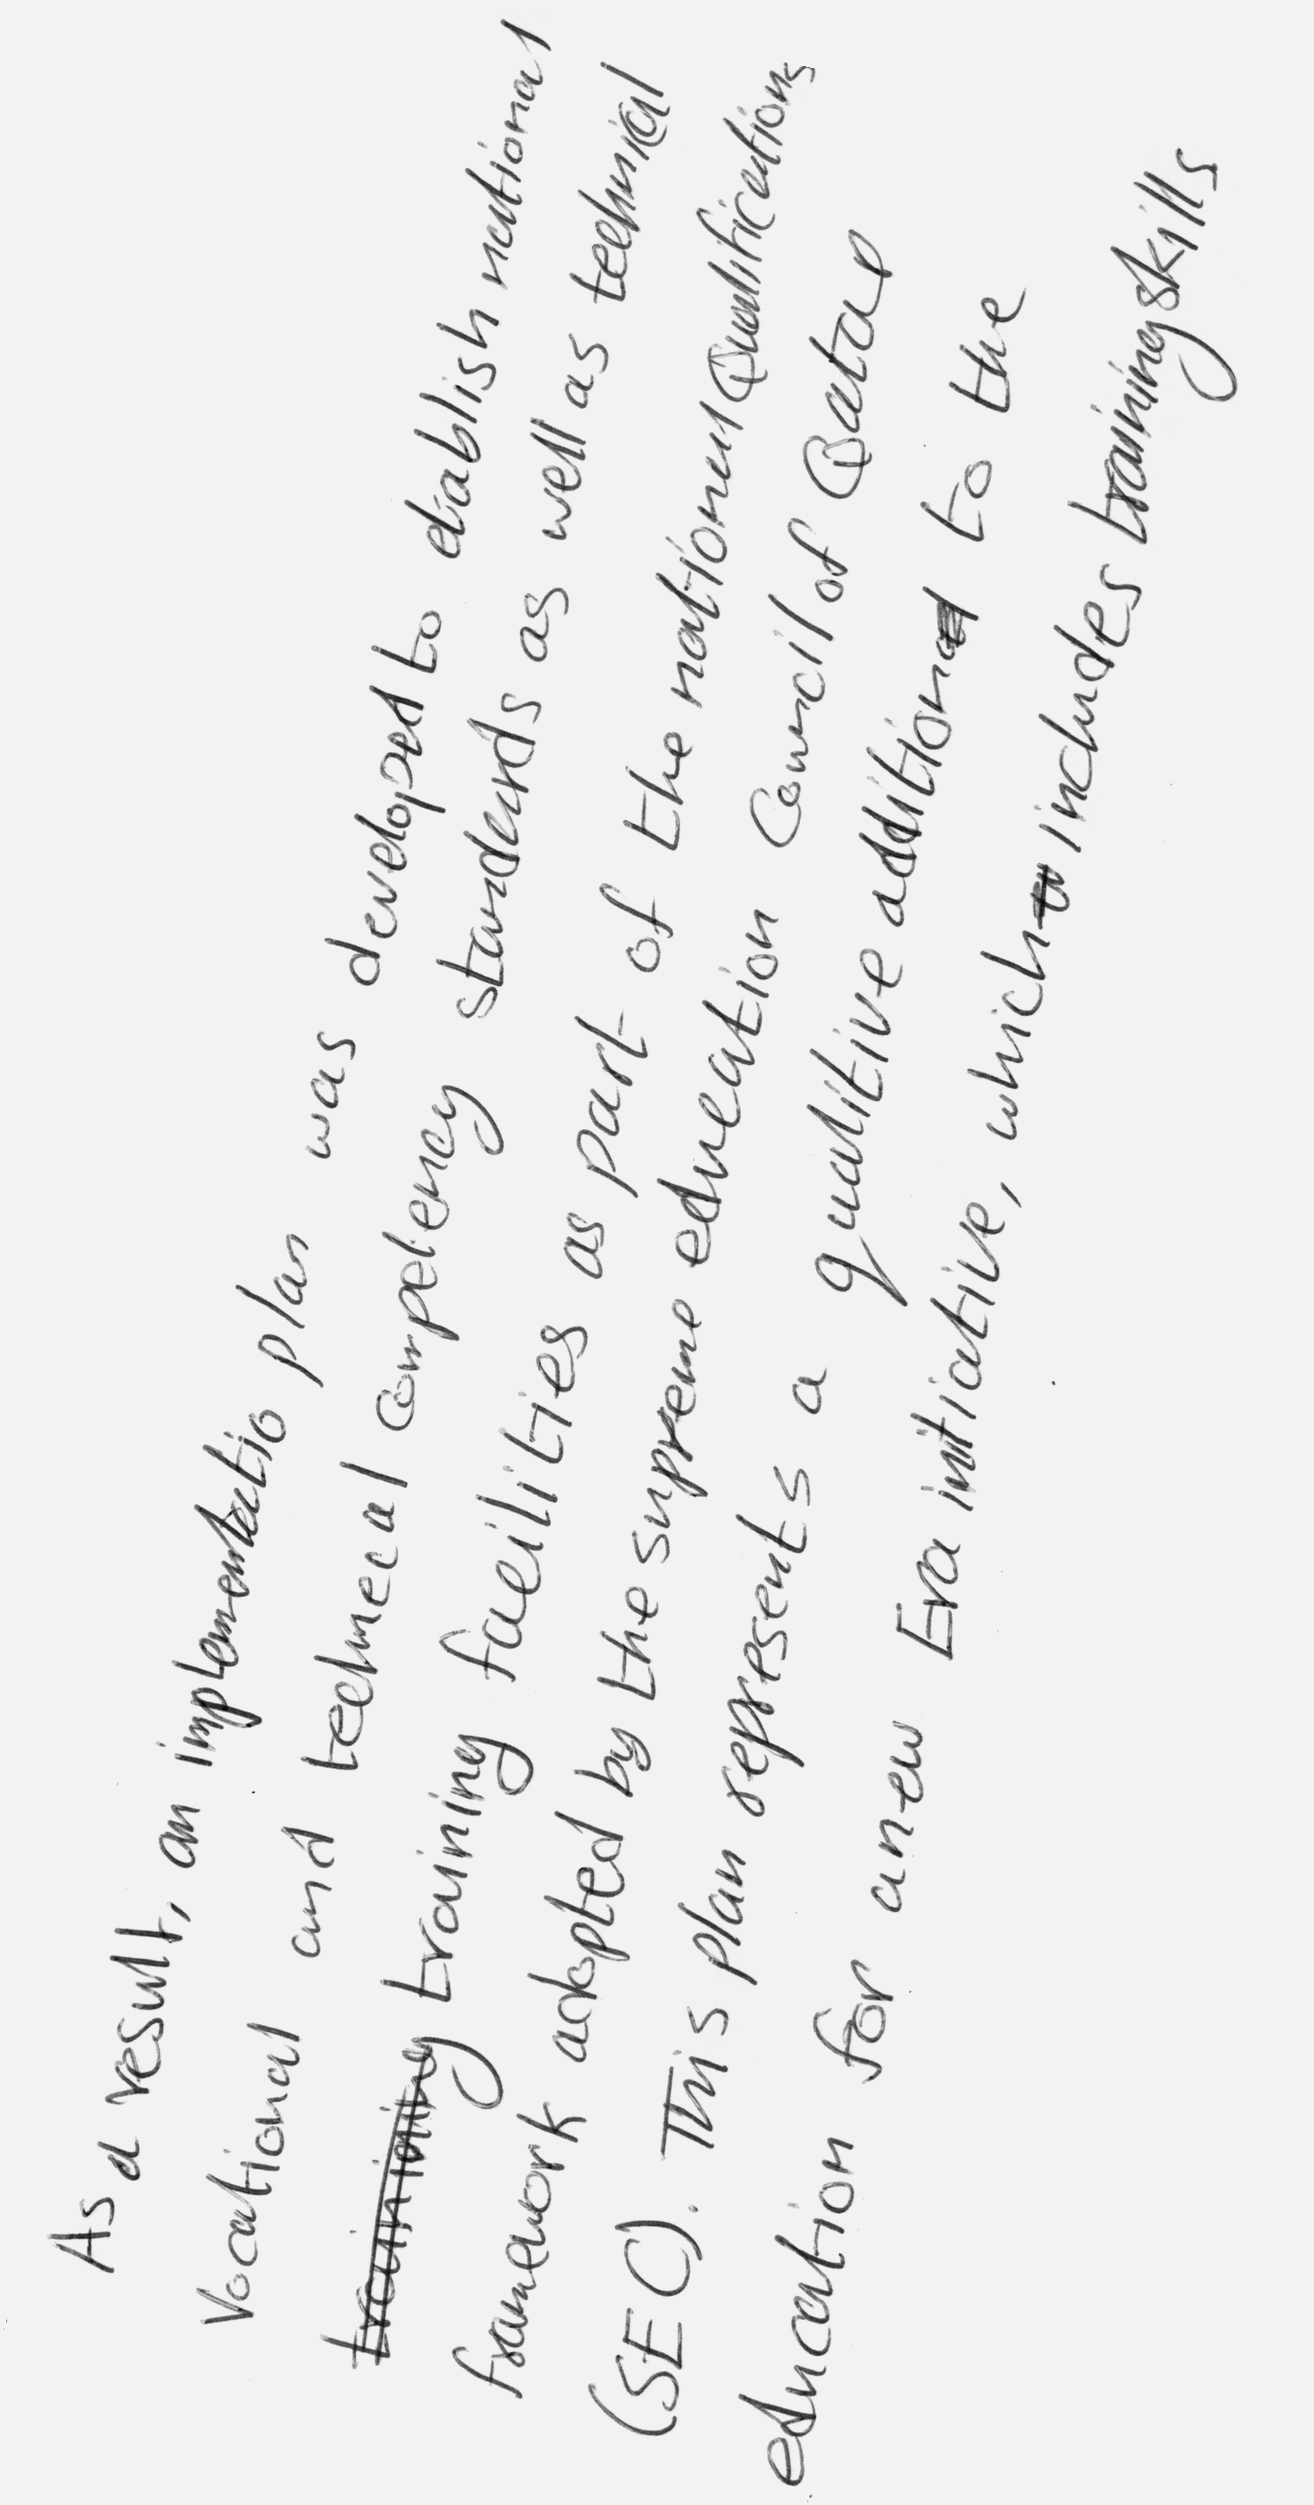 As a result, an implementatio plan was developed to etablish national
Vocational and technecal competency standards as well as technical
training training facilities as part of the national Qualifications
framework adopted by the supreme education Council of Qatar
(SEC). This plan represents a qualitive addition to the
education for a new Era initiative, which includes training skills